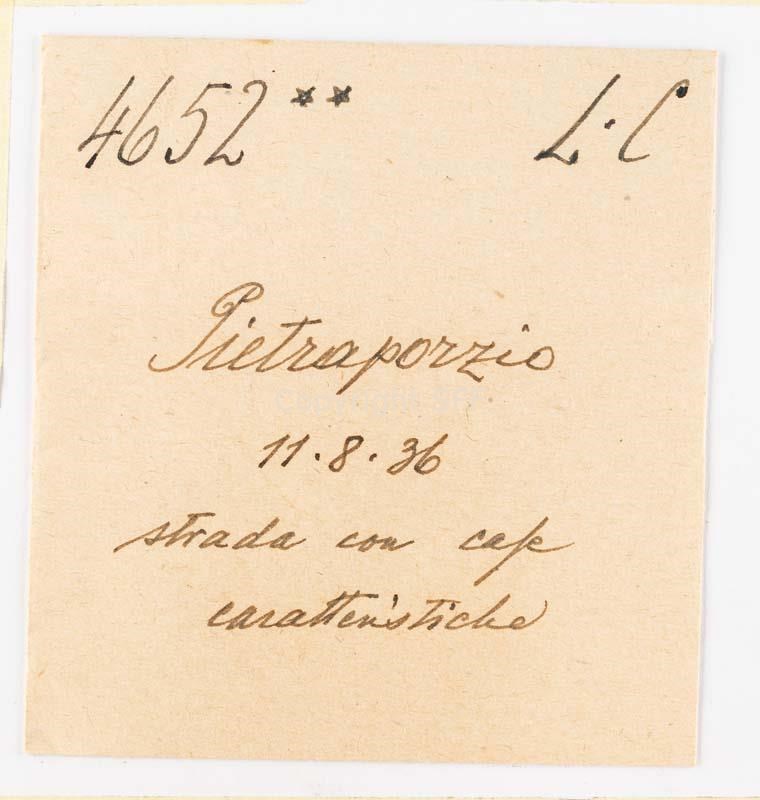 4652 ** L. C
Pietraporzio
11.8.36
strada con case
caratteristiche